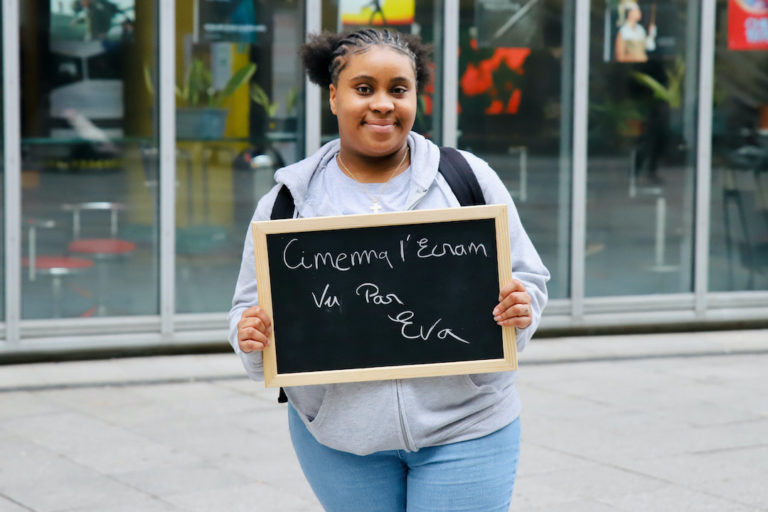 Cinemma l'Ecran
Vu Par
Eva